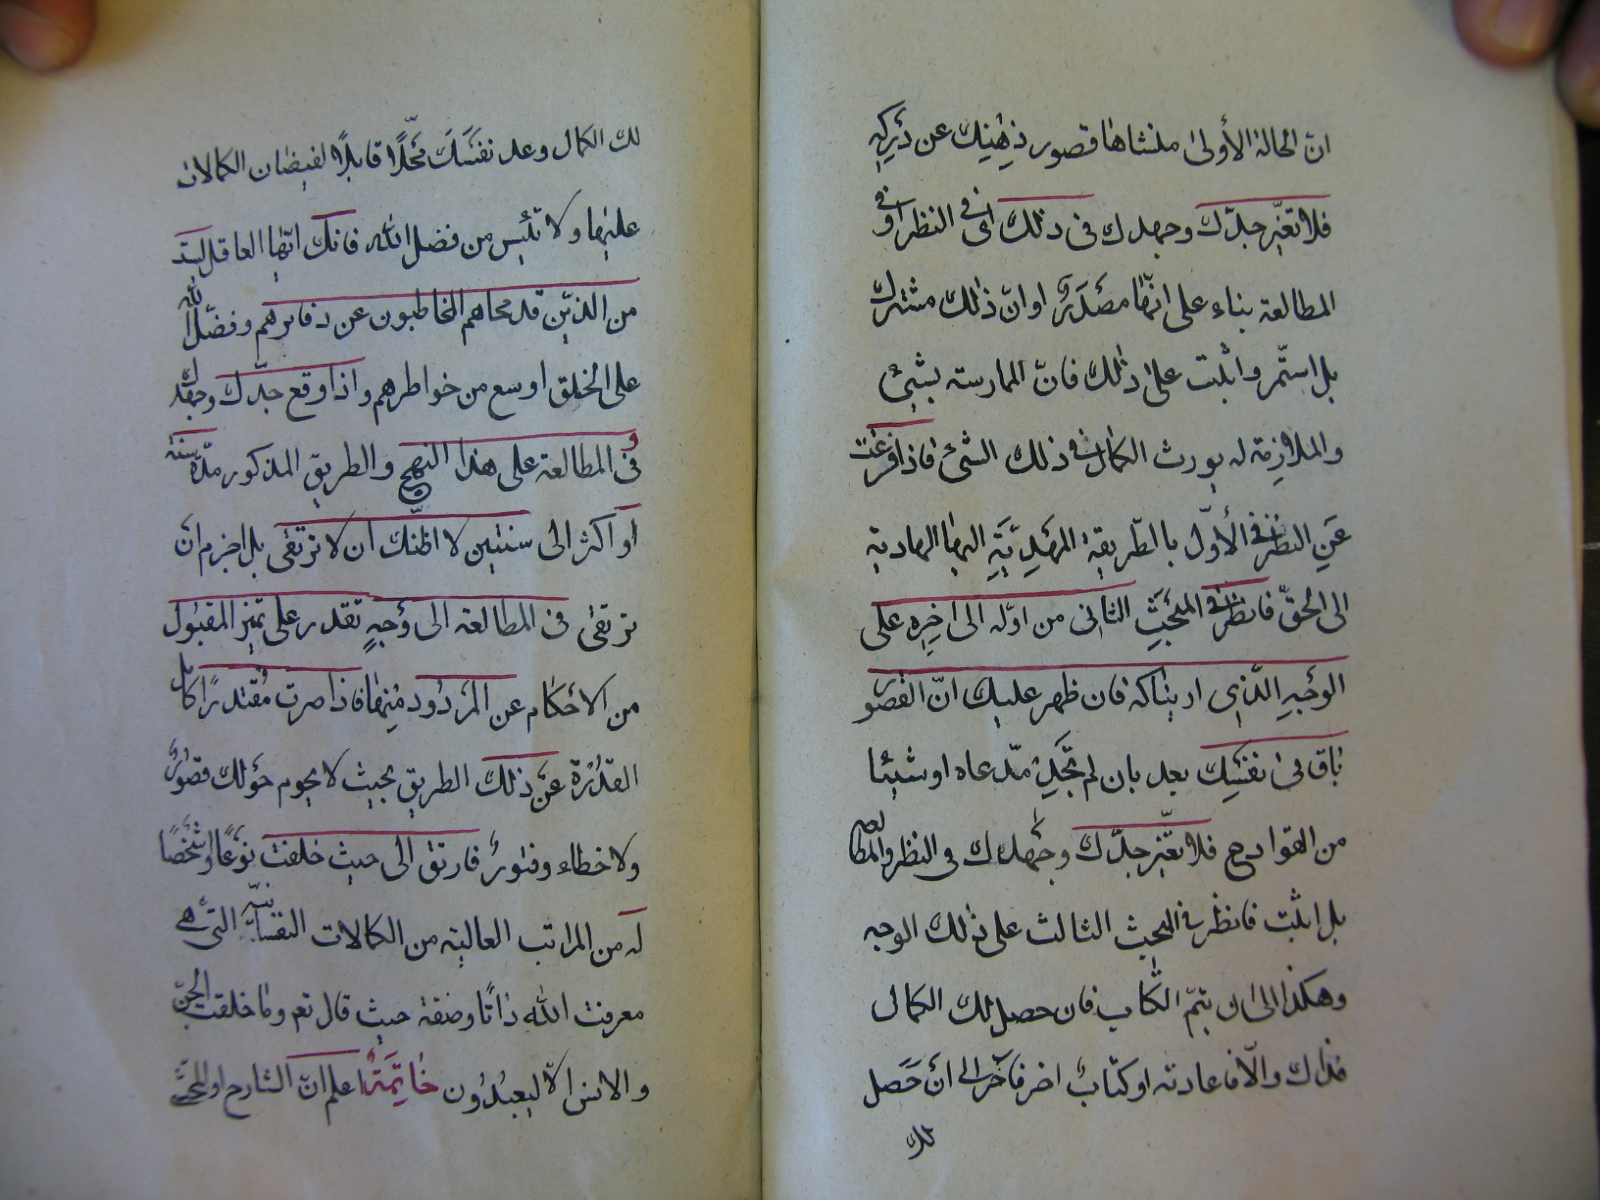 انّ الحالة الأولى منشاها قصور ذِهنِك عن دَركِه
فلا تغيّر جدّك وجهدك فى ذلك اى فى النظر او فى
المطالعة بناء على انّها مصدَر او انّ ذٰلك مشترك
بل استمّر واثبت علىٰ ذٰلك فانّ الممارسة بشئ
والملازمة له يورث الكمال فى ذلك الشئ فاذا فرغت
عَنِ النظر فى الأوّل بالطّريقة المهَدِيَّةِ اليها الهادية
الى الحقّ فانظر فى المبحَثِ الثانى من اوّله الى اخِرِه على
الوجهِ الّذى اريناكه فان ظهر عليك انّ القصور
بٰاق فى نفسِك بعد بان لم تجد مدّعاه او شيئا
من القوادح فلا تغيّر جدّك وجَهدك فى النظر والمطالعه
بل اثبت فانظر فى البحث الثالث على ذٰلك الوجه
وهكذا الى ان يتمّ الكتاب فان حصل لك الكمال
فذاك والّا فاعادته او كتابٌ اخر فاٰخر الى انْ حَصل
لك
لك الكمال وعد نفسَكَ محَلًّا قابلًا لفيضان الكمالات
عليها ولا تئيس من فضل الله فانك ايّها العاقل لست
من الذين قد محاهم المخاطبون عن دفاترهم وفضل الله
على الخلق اوسع من خواطرهم واذا وقع جدّك وجهدك
فى المطالعة على هذا النهج والطريق المذكور مدّة سنة
او اكثر الى سنتين لا اظنّك ان لا ترتقى بل اجزم انْ
ترتقىٰ فى المطالعة الى وَجهٍ تقدر على تميز المقبُول
من الاحكام عن المردُود مِنها فاذا صرت مُقتدرًا كامل
القدْرة عَن ذلك الطريق بحيث لا يحوم حَولك قصورٌ
ولا خطاء وفتورٌ فارتق الى حيث خلقت نوْعًا او شخصًا
له من المراتب العالية من الكمالات النفسانيّة التى هى
معرفت الله ذاتًا وصفة حيث قال تعم ومٰا خلقت الجنّ
والانس الّا ليعبدُون خٰاتِمَةٌ اعلم انّ الشارح او المحشّى